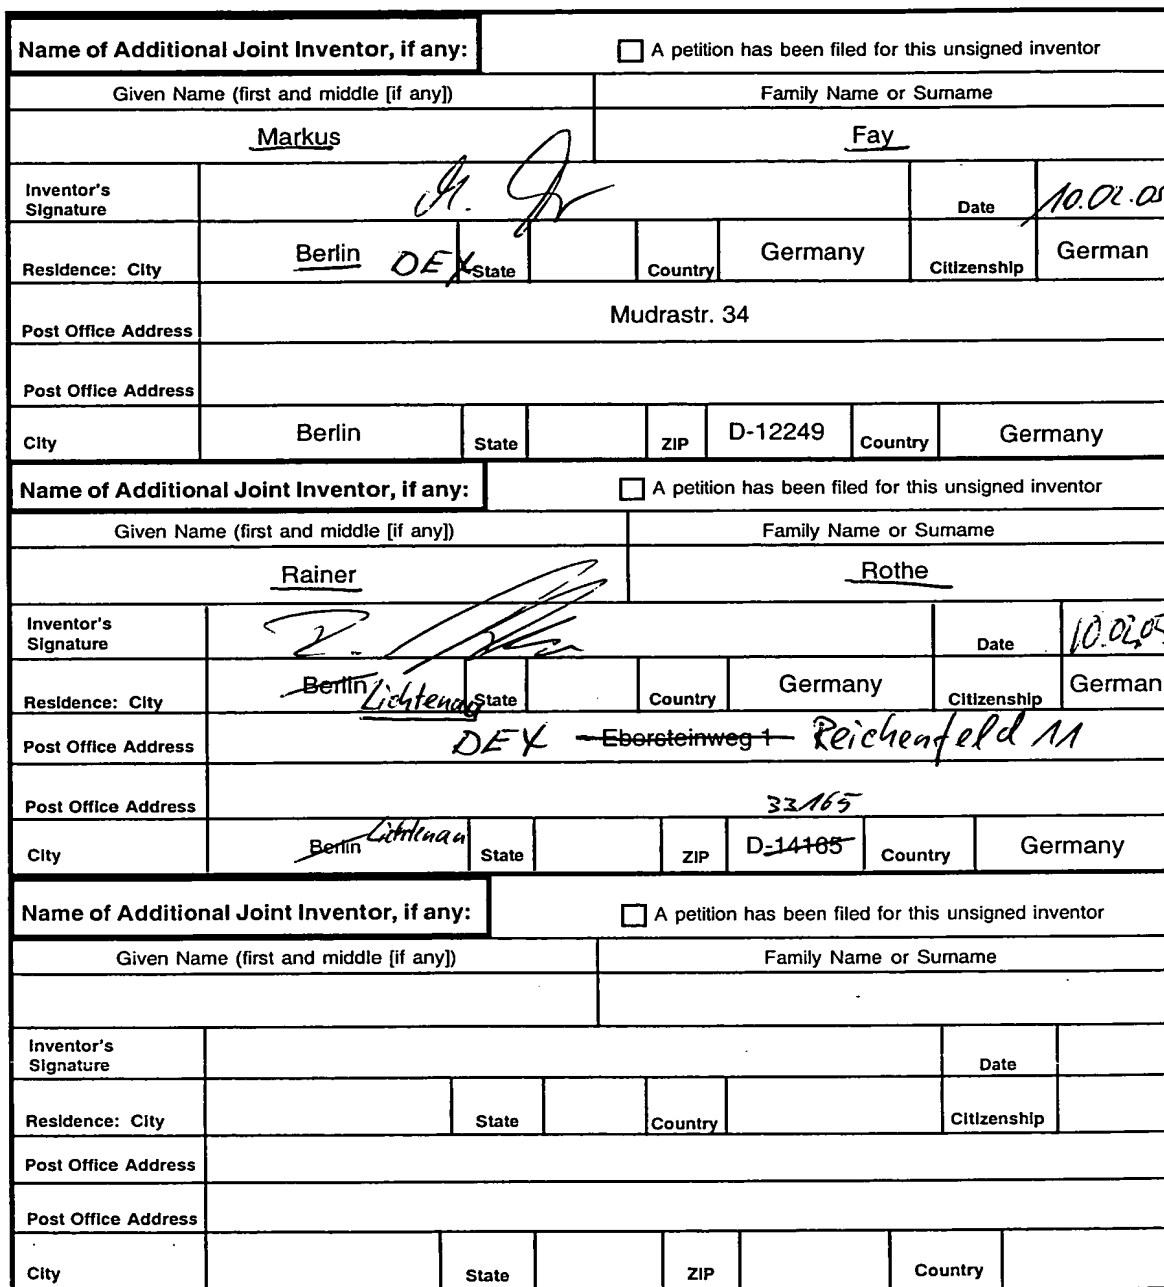 Name of Additional Joint Inventor, if any: A petition has been filed for this unsigned inventor
Given Name (first and middle [if any]) Family Name or Surname
Markus Fay
Inventor's
Signature Date 10.02.05
Residence: City Berlin DEX State Country Germany Citizenship German
Post Office Address Mudrastr. 34
Post Office Address
City Berlin State ZIP D-12249 Country Germany
Name of Additional Joint Inventor, if any: A petition has been filed for this unsigned inventor
Given Name (first and middle [if any]) Family Name or Surname
Rainer Rothe
Inventor's
Signature Date 10.02.05
Residence: City Berlin Lichtenau State Country Germany Citizenship German
Post Office Address DEX Ebersteinweg 1 Reichenfeld 11
Post Office Address 33165
City Berlin Lichtenau State ZIP D-14165 Country Germany
Name of Additional Joint Inventor, if any: A petition has been filed for this unsigned inventor
Given Name (first and middle [if any]) Family Name or Surname
Inventor's
Signature Date
Residence: City State Country Citizenship
Post Office Address
Post Office Address
City State ZIP Country